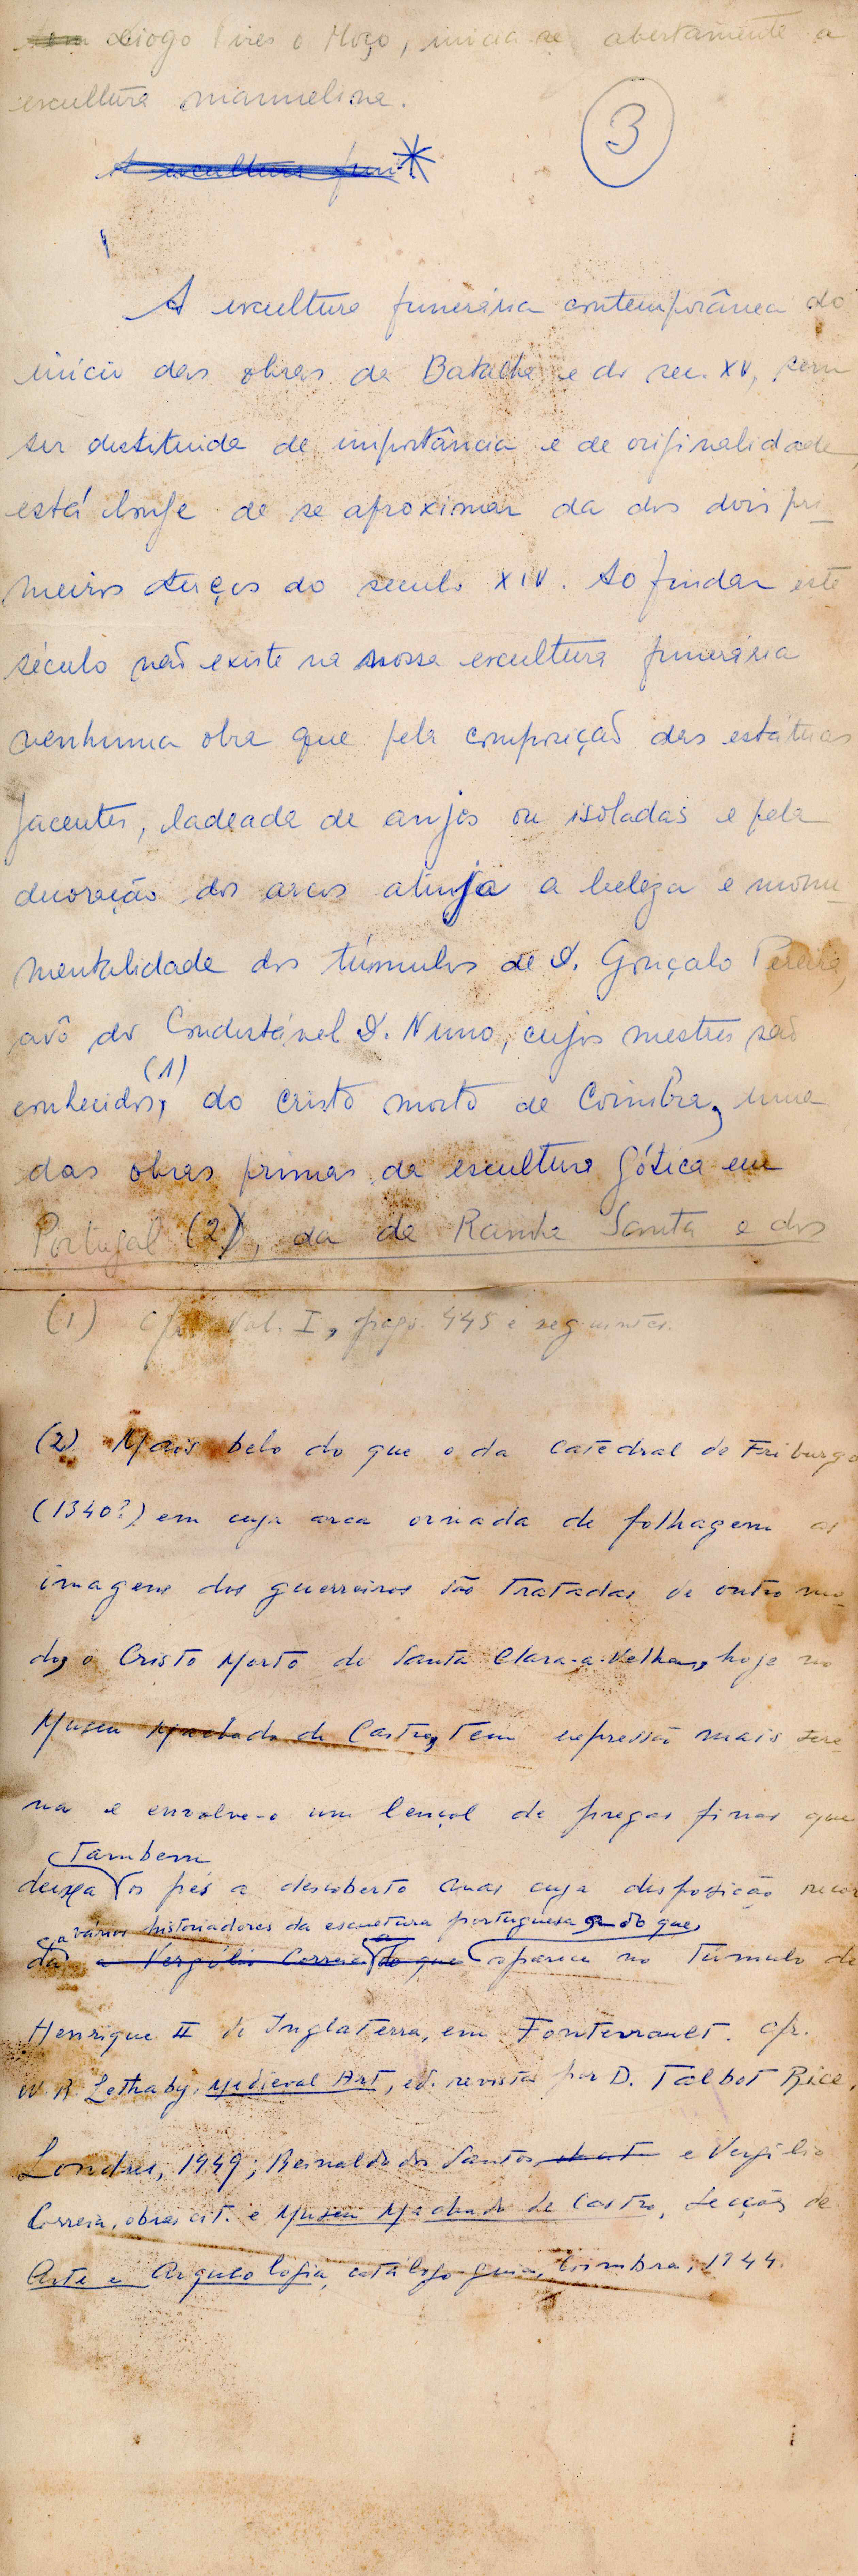 Diogo Pires o Moço, inicia-se abertamente a
escultura manuelina.
3
A escultura fun
A escultura funerária contemporânea do
início das obras da Batalha e do sec. XV, sem
ser destituida de importância e de originalidade,
está longe de se aproximar da dos dois pri-
meiros terços do seculo XIV. Ao findar este
século não existe na nossa escultura funerária
nenhuma obra que pela composição das estátuas
jacentes, ladeada de anjos ou isoladas e pela
decoração dos arcas atinja a beleza e monu-
mentalidade dos túmulos de D. Gonçalo Pereira,
avô do Condestável D. Nuno, cujos mestres são
(1)
conhecidos, do cristo morto de Coimbra, uma
das obras primas da escultura gótica em
Portugal (2), da de Rainha Santa e dos
(1) Cfr. Vol. I, pags. 445 e seguintes.
(2) Mais belo do que o da Catedral de Friburgo
(1340?) em cuja arca ornada de folhagem as
imagens dos guerreiros são tratadas de outro mo-
do, o Cristo Morto de Santa Clara-a-Velha, hoje no
Museu Machado de Castro, tem expressão mais sere-
na e envolve-o um lençol de pregas finas que
Tambem
deixa os pés a descoberto cuja disposição recor
a vários historiadores da escultura portuguesa a do que
da a Vergílio Correia a do que aparece no Túmulo de
Henrique II de Inglaterra, em Fontevrault. Cfr.
W. R. Lethaby, Medieval Art, ed. revista por D. Talbot Rice,
Londres, 1949; Reinaldo dos Santos e Vergílio
Correia, obras cit. e Museu Machado de Castro, Secções de
Arte e Arqueologia, catálogo guia, Coimbra, 1944.